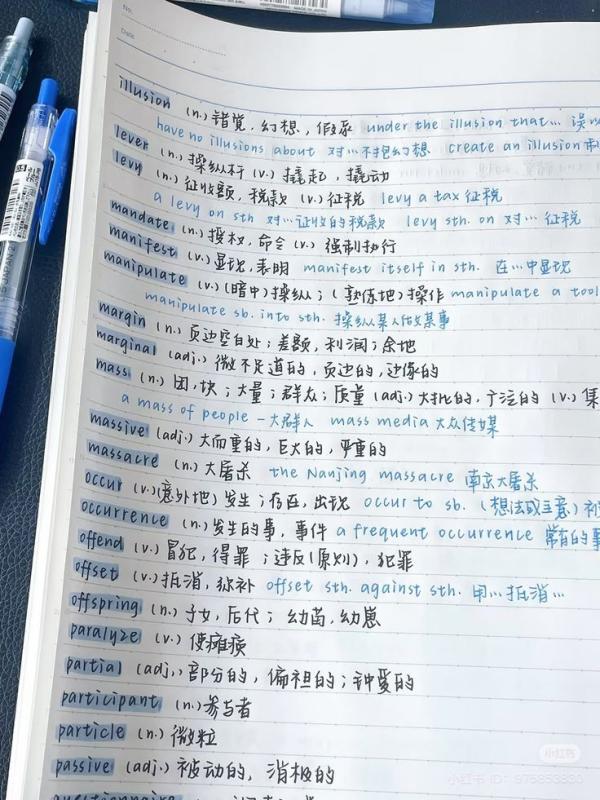 No.
Date
illusion (n.) 错觉,幻想,假象 under the illusion that… 误以
have no illusions about 对…不抱幻想 create an illusion 制
lever (n.) 操纵杆 (v.) 撬起,撬动
levy (n.) 征收额,税款 (v.) 征税 levy a tax 征税
a levy on sth 对…证收的税款 levy sth. on 对…征税
mandate (n.) 授权,命令 (v.) 强制执行
manifest (v.) 显现,表明 manifest itself in sth. 在…中显现
manipulate (v.) (暗中)操纵;(熟练地)操作 manipulate a tool
manipulate sb. into sth. 操纵某人做某事
margin (n.) 页边空白处;差额,利润;余地
marginal (adj.) 微不足道的,页边的,边缘的
mass (n.) 团,块;大量;群众;质量 (adj.) 大批的,广泛的 (v.) 集
a mass of people 一大群人 mass media 大众传媒
massive (adj.) 大而重的,巨大的,严重的
massacre (n.) 大屠杀 the Nanjing massacre 南京大屠杀
occur (v.)(意外地)发生;存在,出现 occur to sb. (想法或主意)被
occurrence (n.) 发生的事,事件 a frequent occurrence 常有的事
offend (v.) 冒犯,得罪;违反(原则),犯罪
offset (v.) 抵消,弥补 offset sth. against sth. 用…抵消…
offspring (n.) 子女,后代;幼苗,幼崽
paralyze (v.) 使瘫痪
partial (adj.) 部分的,偏袒的;钟爱的
participant (n.) 参与者
particle (n.) 微粒
passive (adj.) 被动的,消极的
questionnaire
小红书
小红书 ID: 975853830